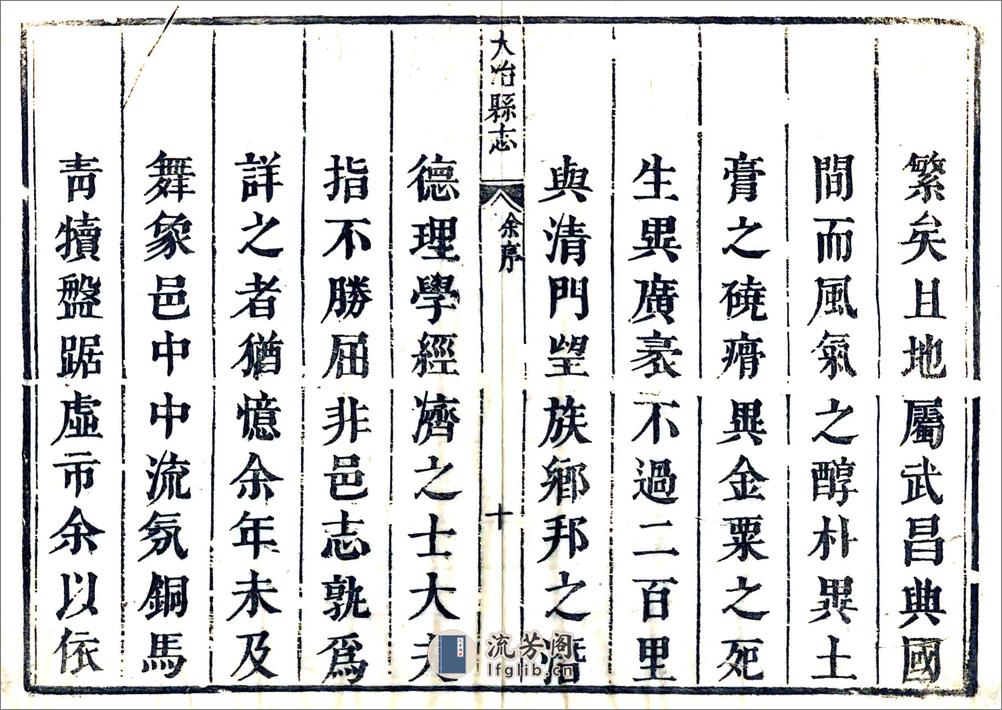 繁矣且地屬武昌典國
間而風氣之醇朴異土
膏之磽瘠異金粟之死
生異廣袤不過二百里
與清門望族鄉邦之潛
大冶縣志
余序
十
德理學經濟之士大夫
指不勝屈非邑志孰爲
詳之者猶憶余年未及
舞象邑中中流氛銅馬
青犢盤踞虛市余以依
流芳阁
lfglib.cn